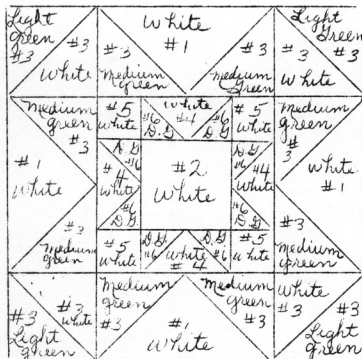 Light
green
#3
#3
White
#3
Medium
green
White
#1
#3
Medium
Green
#3
White
Light
Green
#3
Medium
green
#3
#1
White
#3
Medium
green
#5
White
#6
D.G
White
#4
#6
D.G
#5
White
#6
D.G
#4
White
#6
D.G
#2
White
#6
D.G
#4
White
#6
D.G
#5
White
D.G
#6
White
#4
D.G
#6
#5
White
Medium
green
#3
White
#1
#3
Medium
green
#3
#3
White
Light
Green
Medium
green
#3
#1
White
Medium
green
#3
White
#3
#3
Light
Green